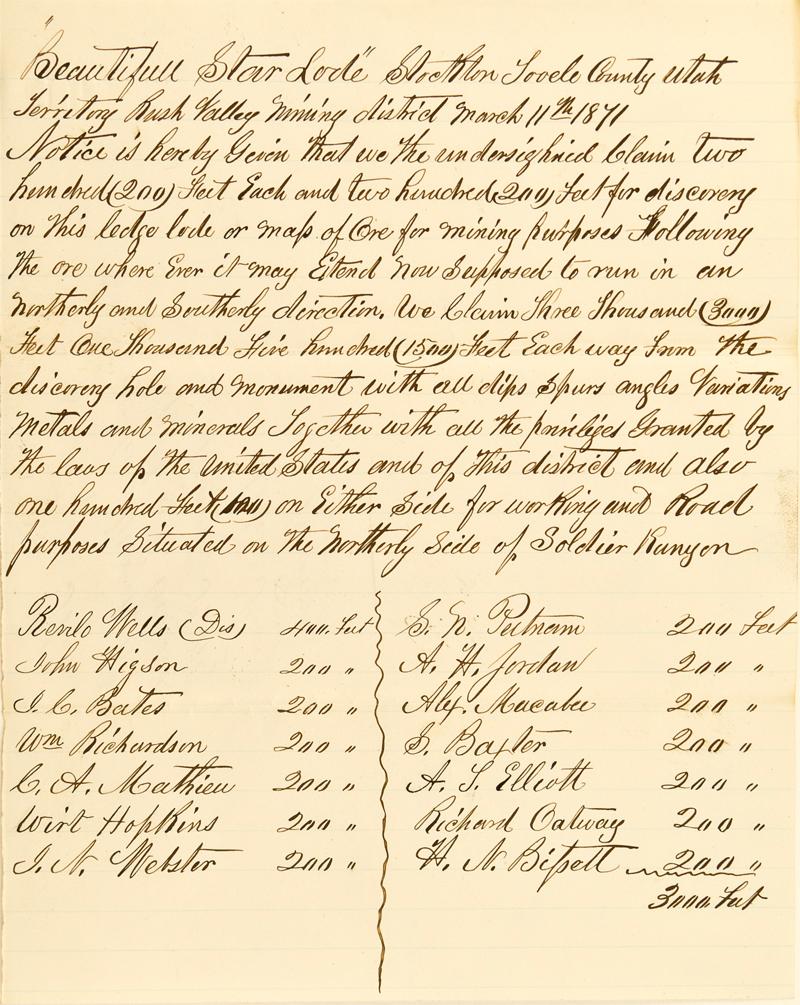 "Beautifull Star Lode" Stockton Tooele County Utah
Territory Rush Valley Mining district March 11th 1871
Notice is hereby Given that we the undersighnied Claim two
hundred (200) Feet Each and two hundred (200) Feet for discovery
on this ledge lode or mass of Ore for mining purposes Following
the ore where Ever it may Etend Now Supposed to run in an
Northerly and Southerly direction. We Claim Three Thousand (3000)
Feet One Thousand Five hundred (1500) Feet Each way from the
discovery hole and monument with all dips Spurs angles Variations
Metals and minerals Together with all the priviliges Granted by
the laws of the United States and of this district and also
one hundred Feet (100) on Either Side for working and Road
purposes Situated on the Northerly Side of Soldier Kanyon
Revilo Wells (Dis) 400. Feet
John Higson 200 "
J. C. Bates 200 "
Wm Richardson 200 "
C. A. Mathieu 200 "
Wirt Hopkins 200 "
J. N. Webster 200 "
S. N. Putnam 200 Feet
A. H. Jordan 200 "
Alex. Macabee 200 "
S. Baxter 200 "
A. S. Elliott 200 "
Richard Oatway 200 "
H. N. Bissett 200 "
3000 Feet